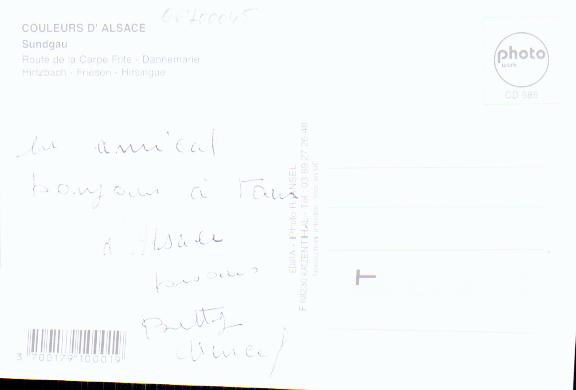 COULEURS D' ALSACE
Sundgau
Route de la Carpe Frite - Dannemarie
Hirtzbach - Friesen - Hirsingue
photo
work
CD 986
un amical
bonjour à Tous
d'Alsace
Betty
EDIRA - Photo
F 68230 KATZENTHAL - Tél. 03 89 27 26 48
T
3 700179 100019